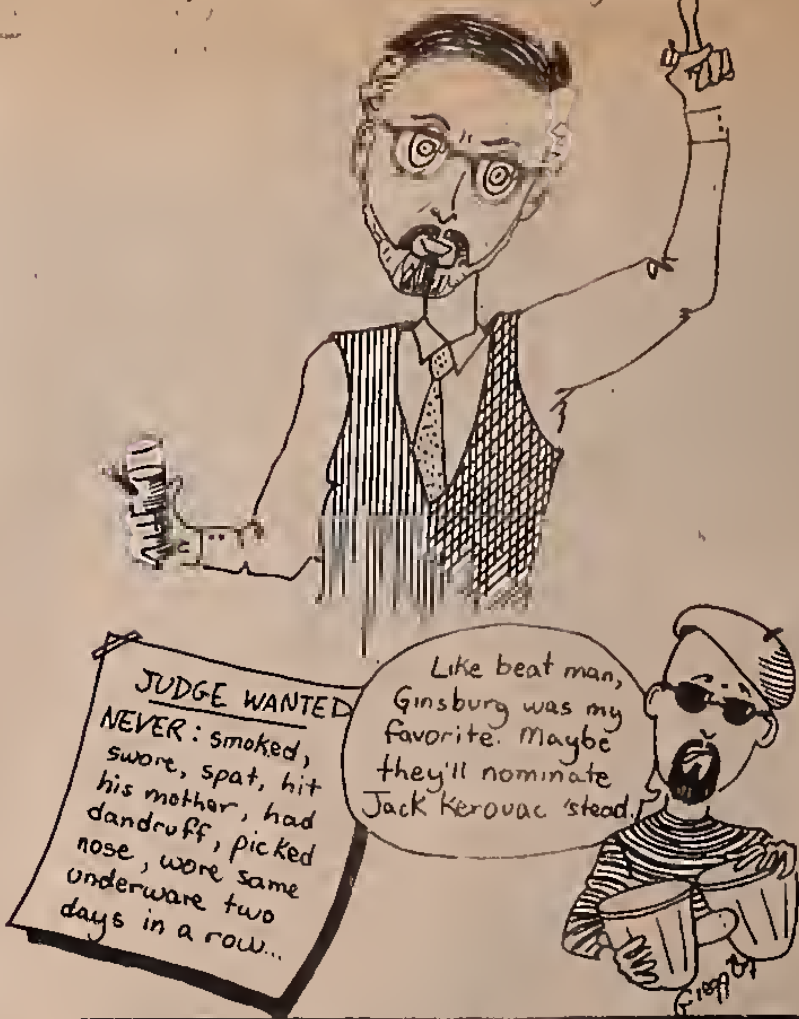 JUDGE WANTED
NEVER: smoked,
swore, spat, hit
his mother, had
dandruff, picked
nose, wore same
underware two
days in a row...
Like beat man,
Ginsburg was my
favorite. Maybe
they'll nominate
Jack Kerouac 'stead.